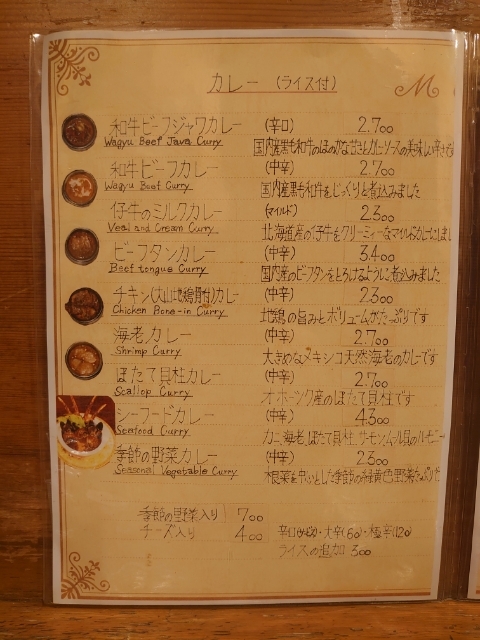 カレー (ライス付)
M
和牛ビーフジャワカレー (辛口) 2.700
Wagyu Beef Java Curry 国内産黒毛和牛のほのかな甘さとカレーソースの美味しい辛さ
和牛ビーフカレー (中辛) 2.700
Wagyu Beef Curry 国内産黒毛和牛をじっくりと煮込みました
仔牛のミルクカレー (マイルド) 2.300
Veal and Cream Curry 北海道産の仔牛をクリーミィーなマイルドカレーにしまし
ビーフタンカレー (中辛) 3.400
Beef tongue Curry 国内産のビーフタンをとろけるように煮込みました
チキン(大山地鶏骨付)カレー (中辛) 2.300
Chicken Bone-in Curry 地鶏の旨みとボリュームがたっぷりです
海老カレー (中辛) 2.700
Shrimp Curry 大きめなメキシコ天然海老のカレーです
ほたて貝柱カレー (中辛) 2.700
Scallop Curry オホーツク産のほたて貝柱です
シーフードカレー (中辛) 4.300
Seafood Curry カニ、海老、ほたて貝柱、サーモン、ムール貝の
季節の野菜カレー (中辛) 2.300
Seasonal Vegetable Curry 根菜を中心とした季節の緑黄色野菜たっぷり
季節の野菜入り 700
チーズ入り 400 辛口 ・大辛(60)・極辛(120)
ライスの追加 300